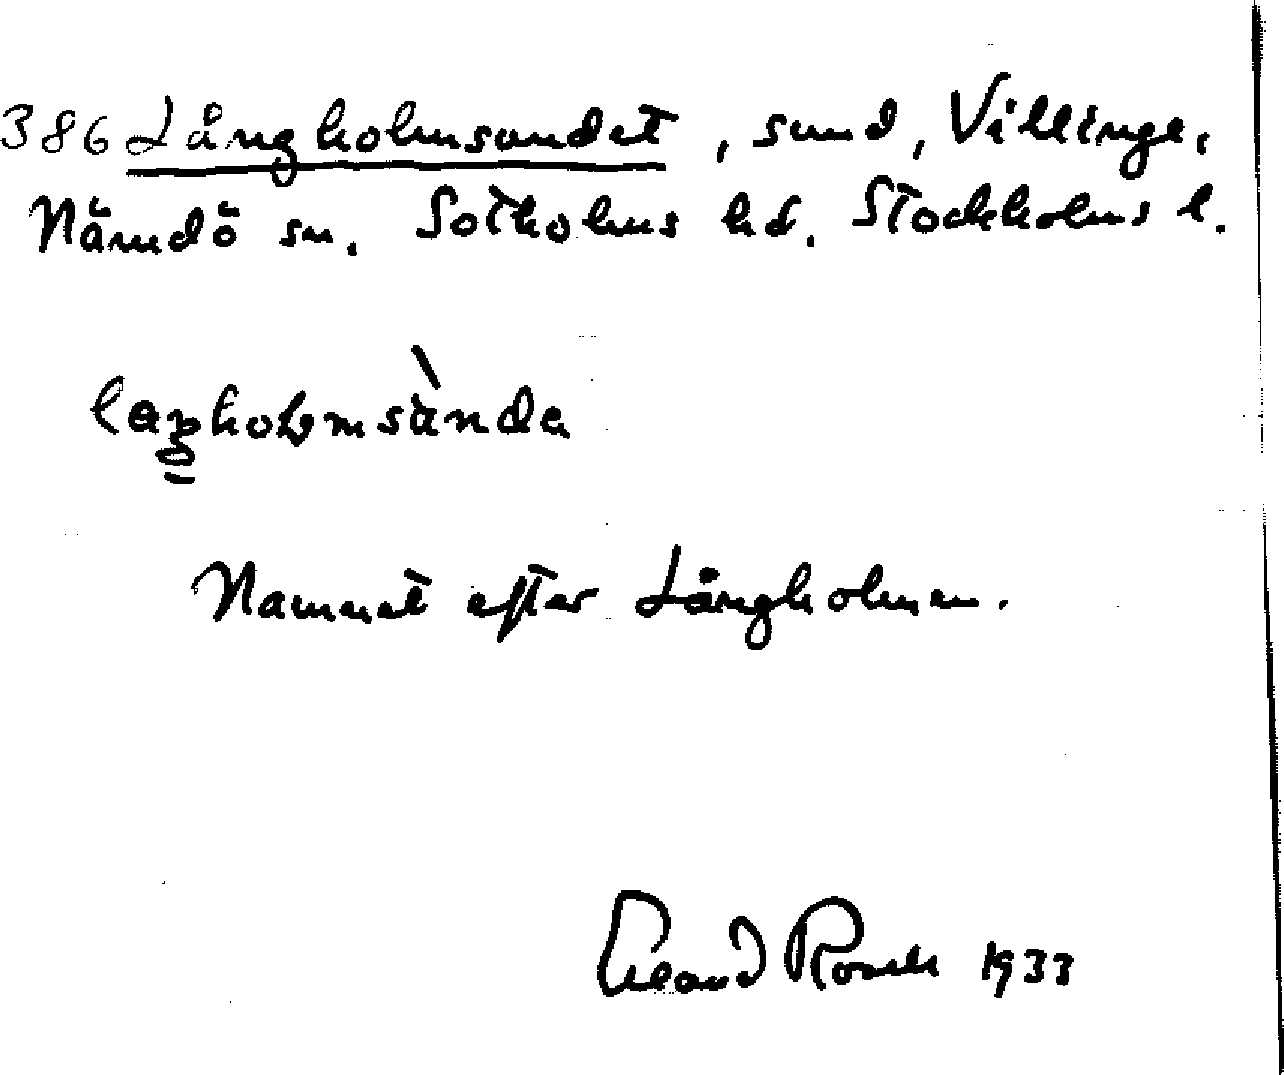 386 Långholmsundet, sund, Villinge,
Nämdö sn. Sotholms hd. Stockholms l.
Namnet efter Långholmen.
Erland Rosell 1933